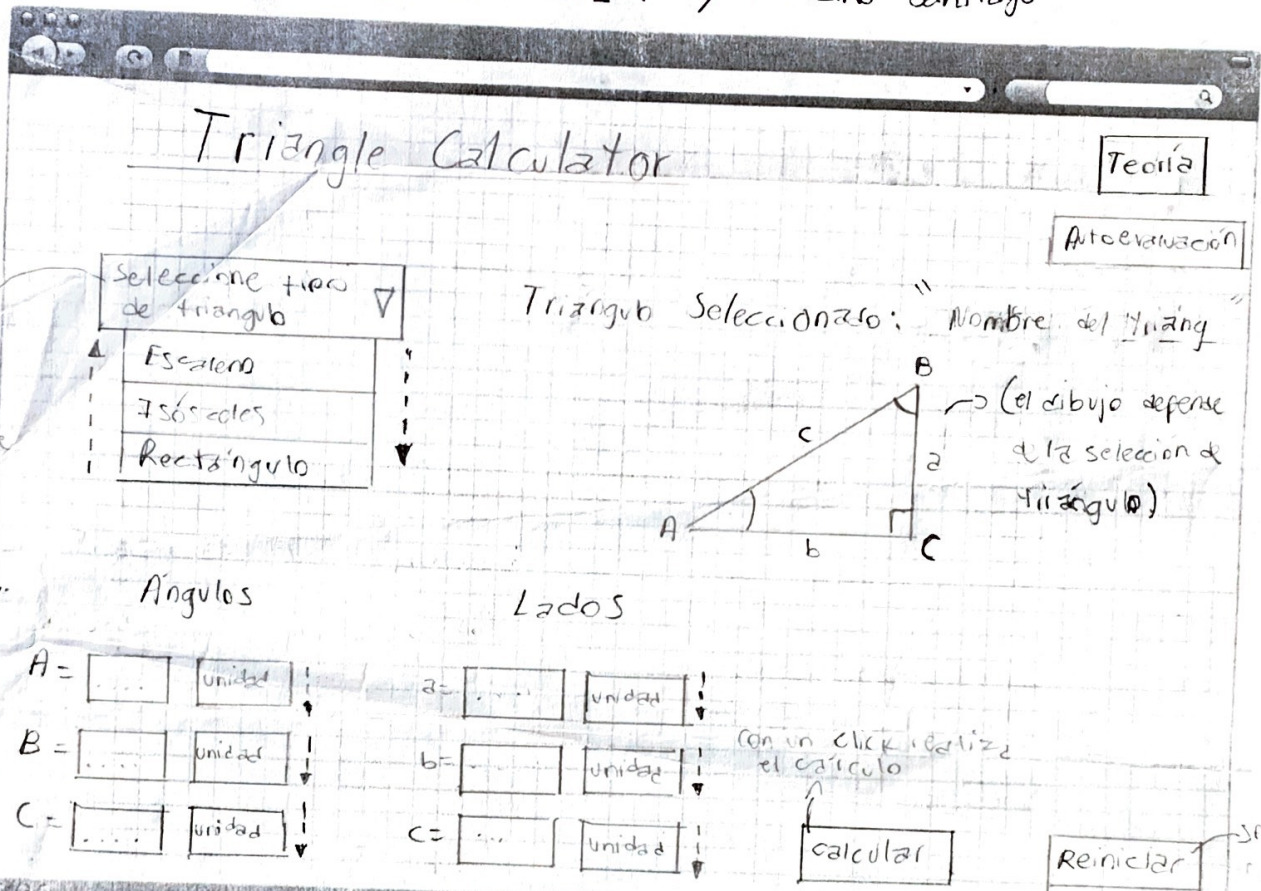 Santiago
Triangle Calculator
Teoría
Autoevaluación
Seleccione tipo
de triangulo
Escaleno
Isósceles
Rectángulo
Triángulo Seleccionado: "Nombre del triáng"
B
(el dibujo depende
de la selección de
triángulo)
c
a
A
b
C
Ángulos
Lados
A= .... unidad
a= .... unidad
B= .... unidad
b= .... unidad
con un click realiza
el cálculo
C= .... unidad
c= ... unidad
calcular
Reiniciar